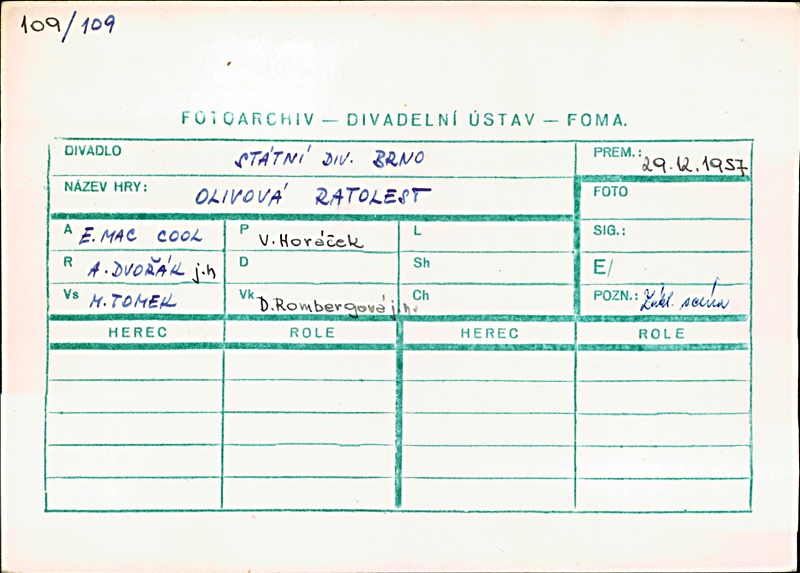 109/109
FOTOARCHIV — DIVADELNÍ ÚSTAV — FOMA.
DIVADLO STÁTNÍ DIV. BRNO PREM.: 29.12.1957
NÁZEV HRY: OLIVOVÁ RATOLEST FOTO
A E. MAC COOL P V. Horáček L SIG.:
R A. DVOŘÁK j.h D Sh E/
Vs M. TOMEK Vk D. Rombergová j.h. Ch POZN.: Zákl. scéna
HEREC ROLE HEREC ROLE